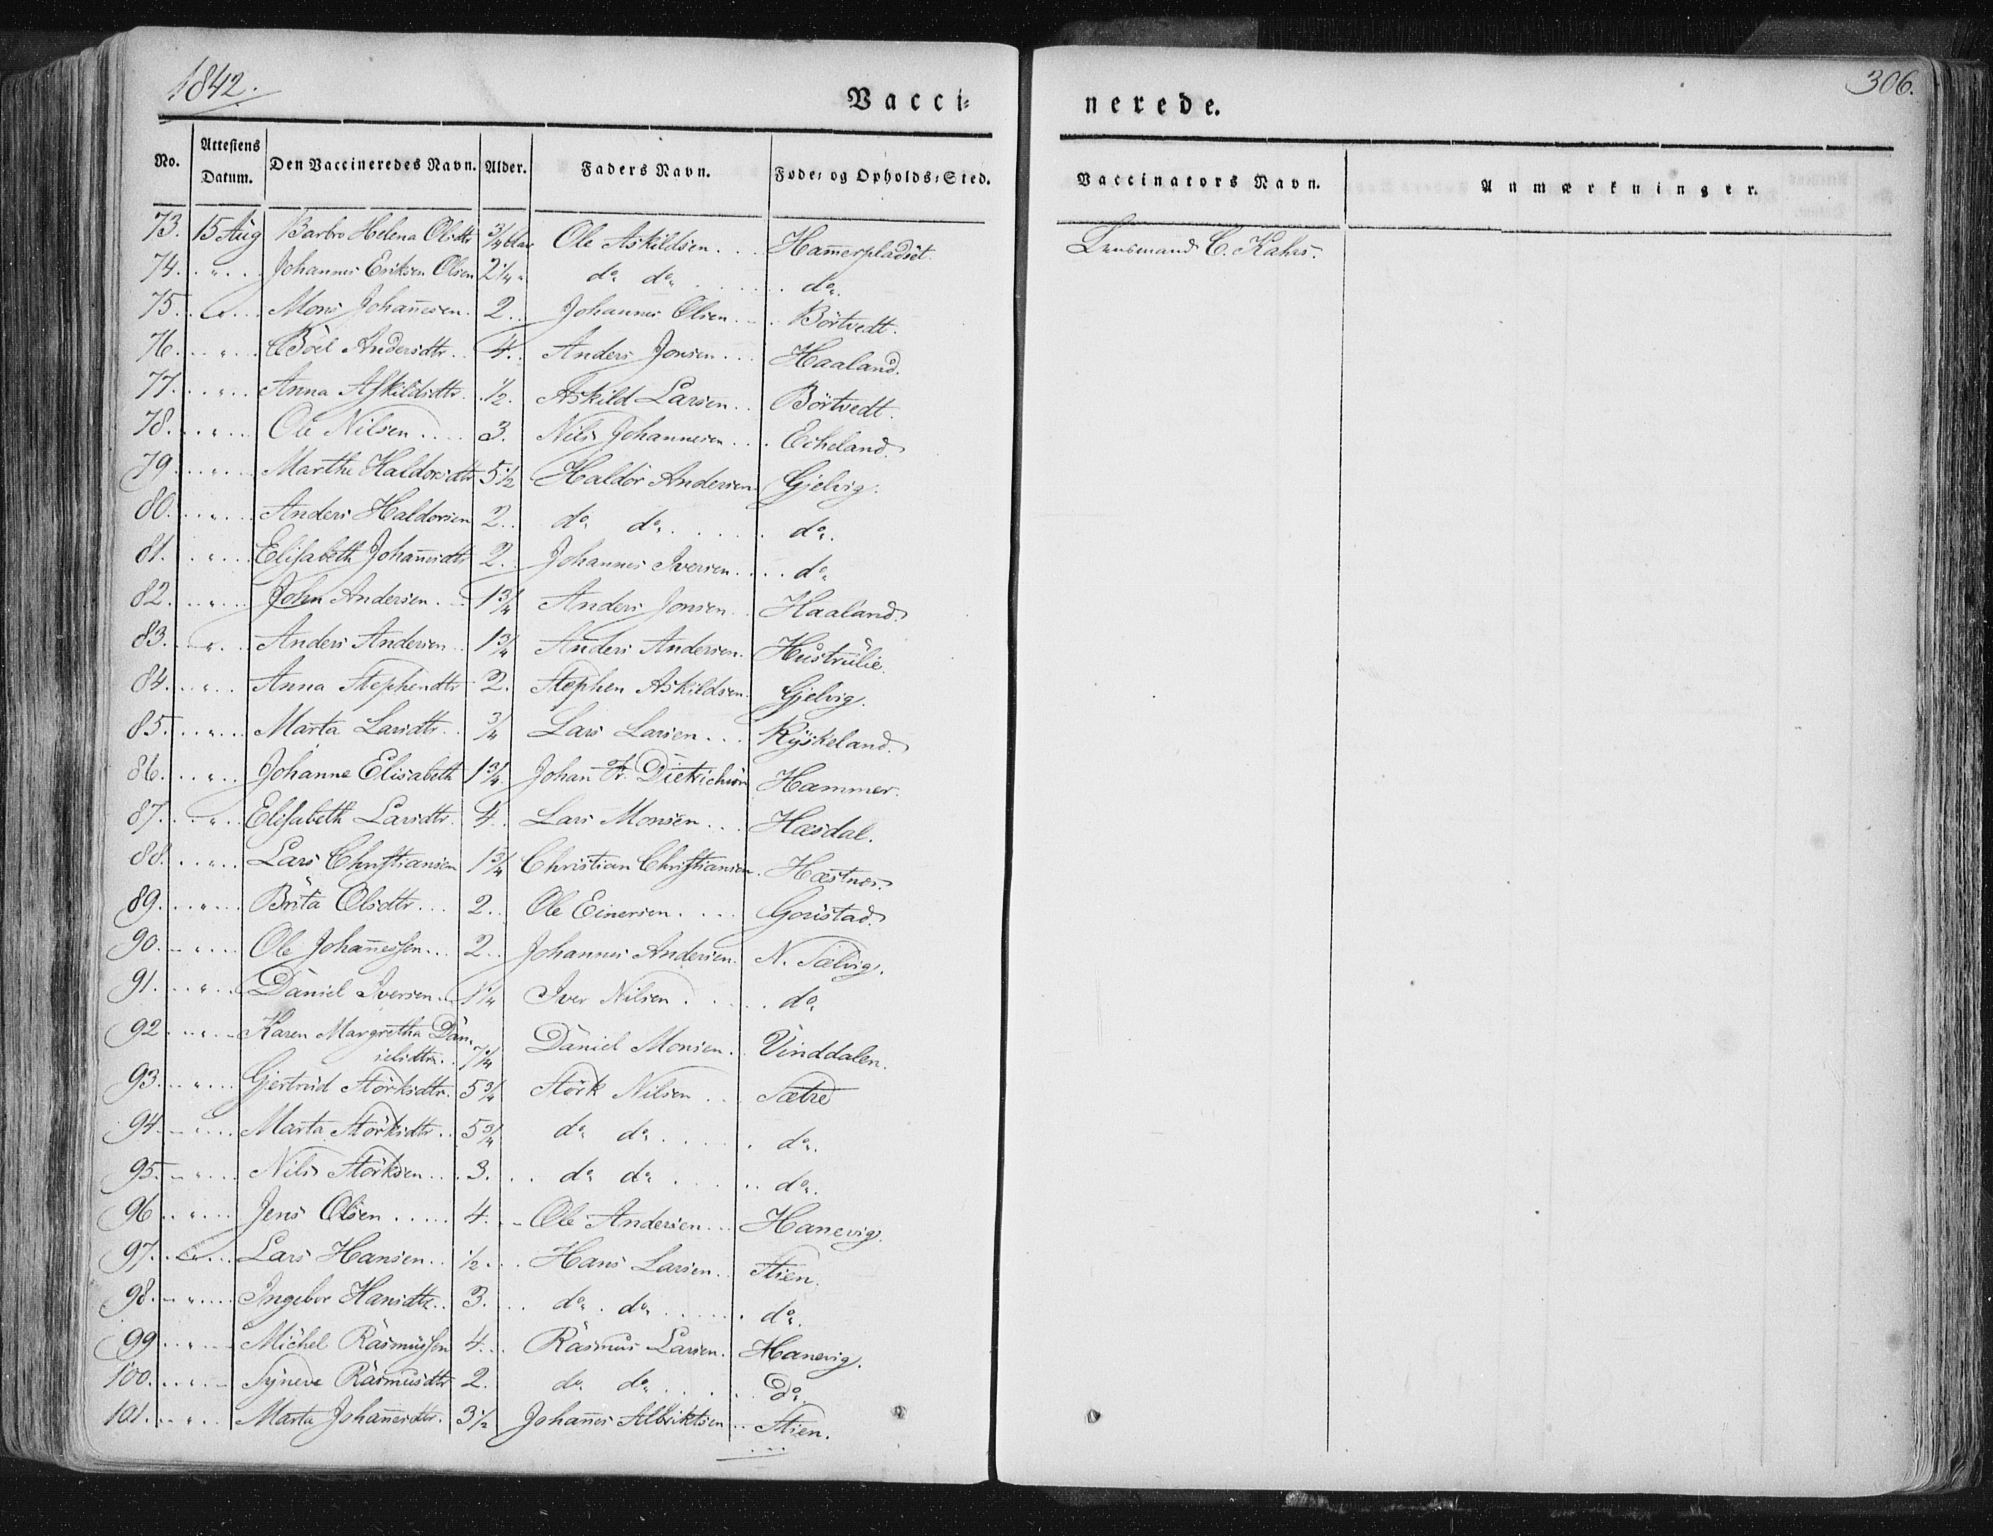 1842.
306.
Vacci-
nerede.
No.
Attestens Datum.
Den Vaccineredes Navn.
Alder.
Faders Navn.
Føde- og Opholds-Sted.
Vaccinators Navn.
Anmærkninger.
73. 15 Aug Barbro Helena Olsdtr 3/4 Ole Askildsen... Ham̄erpladset. Lensmand C. Kahrs.
74. " Johannes Eriksen Olsen 2 1/4 " do do do.
75. " Mons Johan̄esen. 2.. Johannes Olsen.... Börtvedt.
76. " Böel Andersdtr.. 4.. Anders Jonsen... Haaland.
77. " Anna Askildsdtr. 1/2. Askild Larsen.. Börtvedt.
78. " Ole Nilsen.... 3. Nils Johannesen.... Echeland.
79. " Marthe Haldorsdtr 5 1/2 Haldor Andersen. Gjelvig.
80. " Anders Haldorsen 2.. do do do.
81. " Elisabeth Johan̄esdtr 2.. Johannes Iversen.... do
82. " John Andersen... 1 3/4 Anders Jonsen. Haaland.
83. " Anders Andersen. 1 3/4 Anders Andersen. Hustrulie.
84. " Anna Stephensdtr. 2. Stephen Askildsen. Gjelvig.
85. " Marta Larsdtr.. 3/4 Lars Larsen... Ryskeland.
86. " Johanne Elisabeth 1 3/4 Johan Fr. Dietrichson Hammer.
87. " Elisabeth Larsdtr. 4.. Lars Monsen... Hæsdal.
88. " Lars Christiansen 1 3/4 Christian Christiansen. Hæstnes.
89. " Brita Olsdtr... 2.. Ole Einersen.... Goristad.
90. " Ole Johan̄essen... 2.. Johannes Andersen. N. Tælvig.
91. " Daniel Iversen... 1 1/4 Iver Nilsen.... do
92 " Karen Margretha Dan-
ielsdtr.. 7 1/4 Daniel Monsen.. Vinddalen.
93. " Gjertrud Störksdtr. 5 3/4 Störk Nilsen.. Sætre
94. " Marta Störksdtr.. 5 3/4 do do do.
95. " Nils Störksen.... 3... do do do.
96 " Jens Olsen..... 4... Ole Andersen... Hanevig.
97. " Lars Hansen.. 1/2... Hans Larsen.. Stien.
98. " Ingebor Hansdtr.. 3.... do. do do.
99 " Michel Rasmussen 4... Rasmus Larsen. Hanevig.
100. " Synneve Rasmusdtr 2. do do do
101. " Marta Johan̄esdtr. 3 1/2 Johan̄es Albriktsen... Stien.